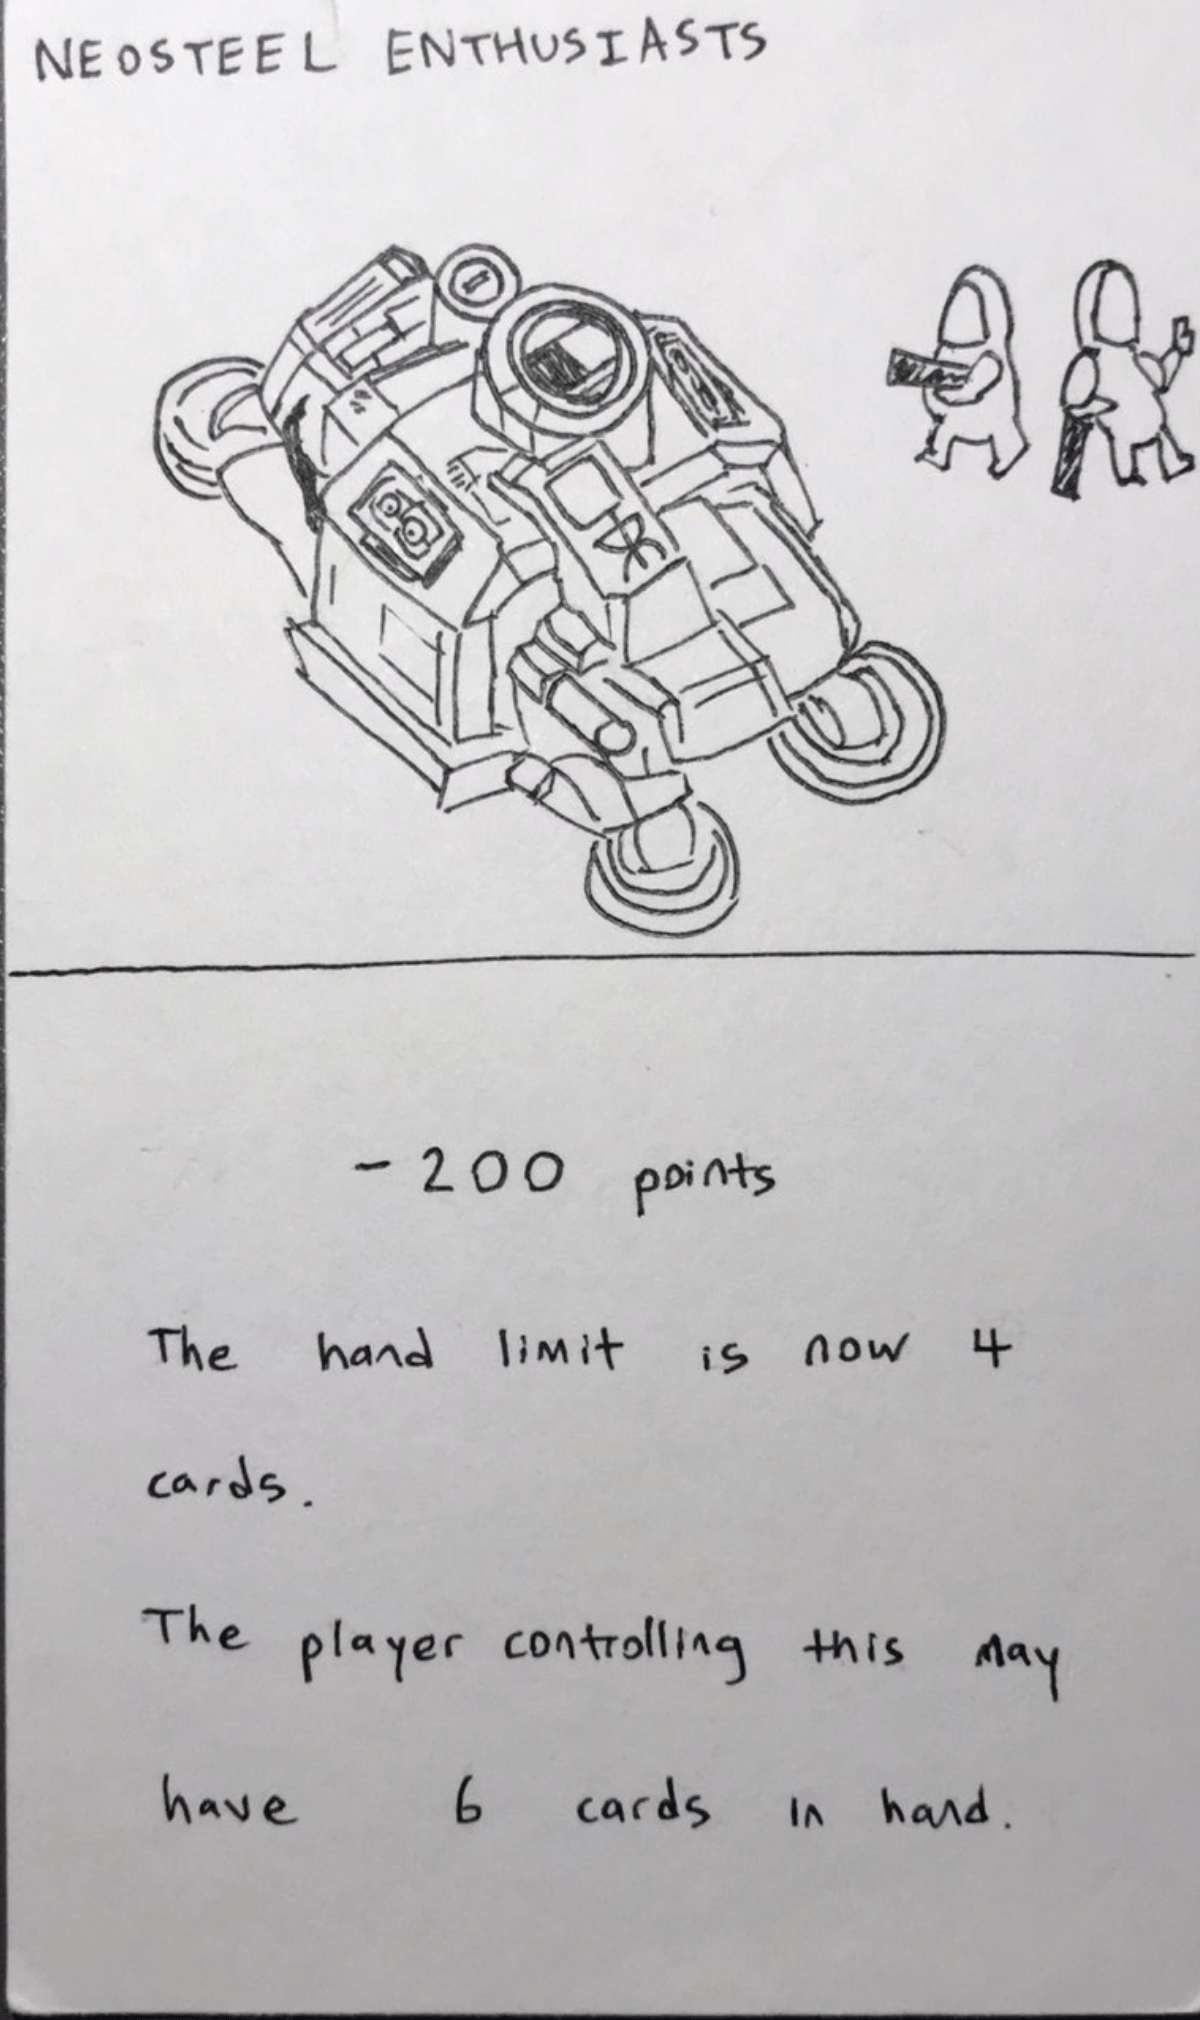 NEOSTEEL ENTHUSIASTS
-200 points
The hand limit is now 4
cards.
The player controlling this may
have 6 cards in hand.